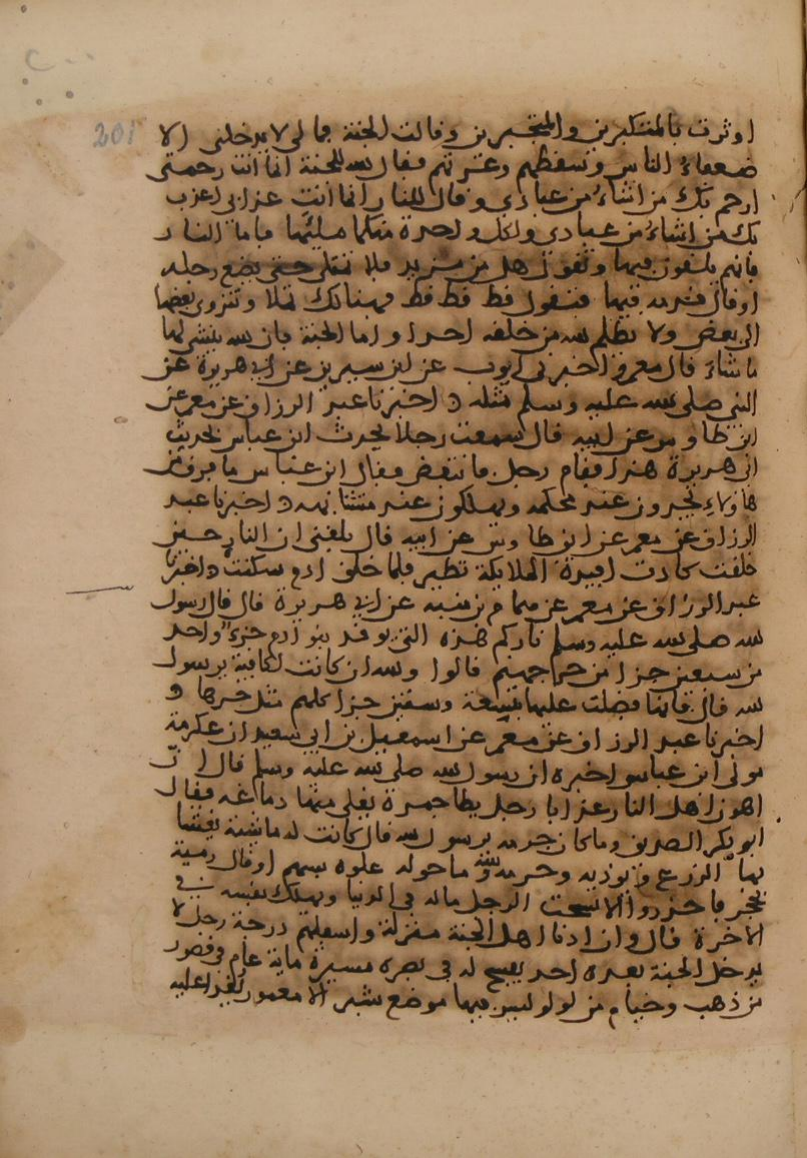 201
اوثرت بالمتكبرين والمتجبرين وقالت الجنة فما لى لا يدخلنى الا
ضعفاء الناس وسقطهم وعرتهم فقال لله للجنة انما انت رحمتى
ارحم بك من اشاء من عبادى وقال للنار انما انت عذابى اعذب
بك من اشاء من عبادى ولكل واحدة منكما ملئها فاما النار
فانهم يلقون فيها وتقول هل من مزيد فلا تمتلى حتى يضع رجله
او قال قدمه فيها فتقول قط قط قط فهنالك تملا وتنزوى بعضها
الى بعض ولا يظلم لله من خلقه احدا واما الجنة فان لله ينشى لها
ما شاء قال معمر واخبرنى ايوب عن ابن سيرين عن ابى هريرة عن
النبى صلى لله عليه وسلم مثله اخبرنا عبد الرزاق عن معمر عن
ابن طاوس عن ابيه قال سمعت رجلا يحدث ابن عباس بحديث
ابى هريرة هذا فقام رجل فانتفض فقال ابن عباس ما فرق من
هاولاء يجدون عند محكمه ويهلكون عند متشابهه اخبرنا عبد
الرزاق عن معمر عن ابن طاوس عن ابيه قال بلغنى ان النار حين
خلقت كادت افيدة الملايكة تطير فلما خلق ادم سكنت اخبرنا
عبد الرزاق عن معمر عن همام بن منبه عن ابى هريرة قال قال رسول
لله صلى لله عليه وسلم ناركم هذه التى يوقد بنو ادم جزء واحد
من سبعين جزا من حر جهنم قالوا ولله ان كانت لكافية يرسول
لله قال فانها فضلت عليها بتسعة وستين جزا كلهم مثل حرها
اخبرنا عبد الرزاق عن معمر عن اسمعيل بن ابى سعيد ان عكرمة
مولى ابن عباس اخبره ان رسول لله صلى لله عليه وسلم قال ان
اهون اهل النار عذابا رجل يطا جمرة يغلى منها دماغه فقال
ابو بكر الصديق وما كان جرمه يرسول لله قال كانت له ماشية يغشا
بها الزرع ويوذيه وحرم لله وما حوله غلوة بسهم او قال رمية
بحجر فاحذروا الا يسحت الرجل ماله فى الدنيا ويهلك نفسه فى
الاخرة قال وان ادنا اهل الجنة منزلة واسفلهم درجة رجل لا
يدخل الجنة بعده احد يفسح له فى بصره مسيرة ماية عام فى قصور
من ذهب وخيام من لولو ليس فيها موضع شبر الا معمور يغدا عليه